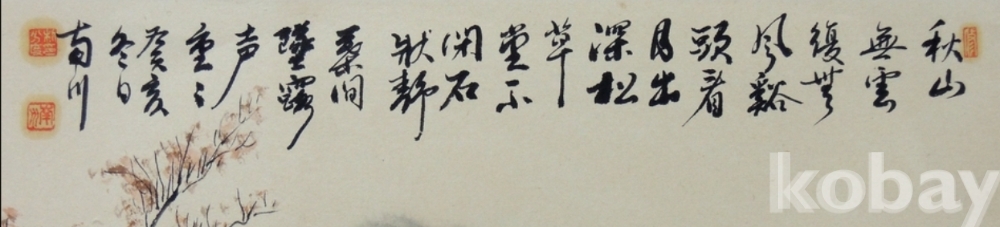 秋山
無雲
復無
風谿
頭看
月出
深松
草
堂不
閉石
牀靜
葉間
墜露
声
重々
癸亥
冬日
南川
kobay